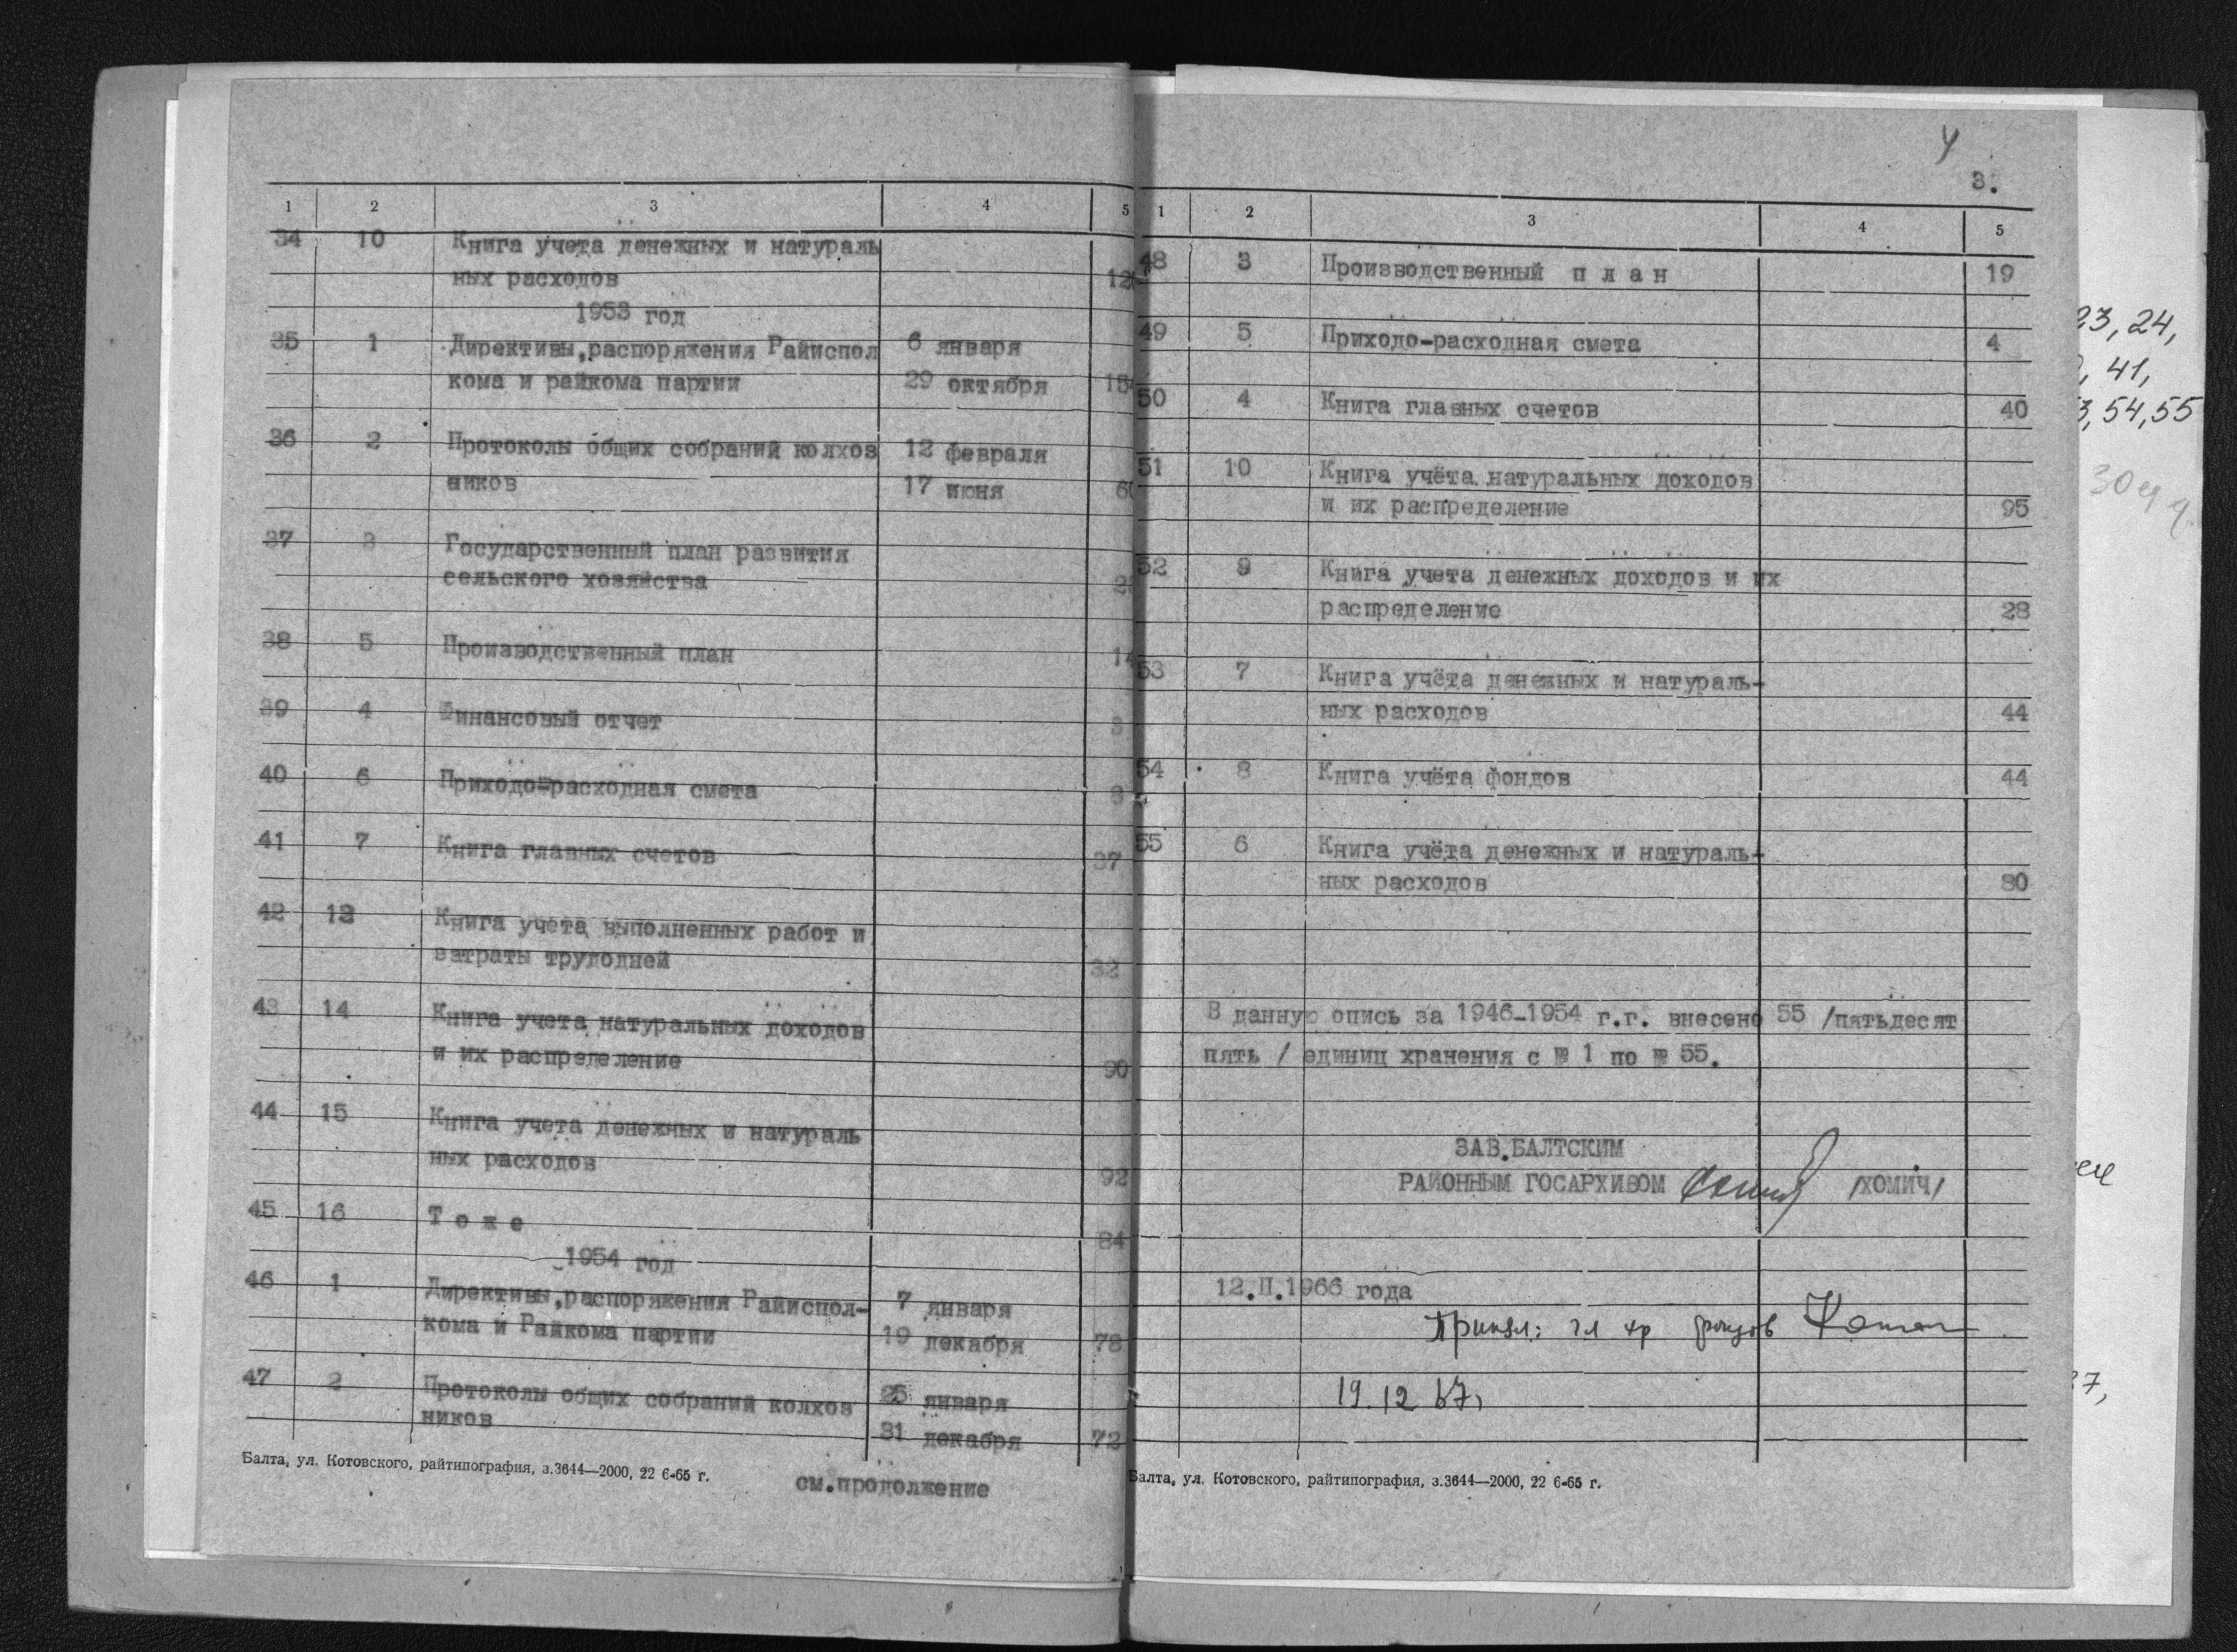 1 2 3 4 5
34 10 Книга учета денежных и натураль
ных расходов
1953 год
35 1 Директивы,распоряжения Райиспол 6 января
кома и райкома партии 29 октября
36 2 Протоколы общих собраний колхоз 12 февраля
ников 17 июня
37 3 Государственный план развития
сельского хозяйства
38 5 Производственный план
39 4 Финансовый отчет
40 6 Приходо-расходная смета
41 7 Книга главных счетов 37
42 12 Книга учета выполненных работ и
затраты трудодней 32
43 14 Книга учета натуральных доходов
и их распределение 90
44 15 Книга учета денежных и натураль
ных расходов 92
45 16 Т о ж е 84
1954 год
46 1 Директивы,распоряжения Райиспол- 7 января
кома и Райкома партии 19 декабря 78
47 2 Протоколы общих собраний колхоз 25 января
ников 31 декабря 72
Балта, ул. Котовского, райтипография, з.3644—2000, 22 6-65 г.
см.продолжение
4
3.
1 2 3 4 5
48 3 Производственный п л а н 19
49 5 Приходо-расходная смета 4
50 4 Книга главных счетов 40
51 10 Книга учёта натуральных доходов
и их распределение 95
52 9 Книга учета денежных доходов и их
распределение 28
53 7 Книга учёта денежных и натураль-
ных расходов 44
54 8 Книга учёта фондов 44
55 6 Книга учёта денежных и натураль-
ных расходов 80
В данную опись за 1946-1954 г.г. внесено 55 /пятьдесят
пять / единиц хранения с № 1 по № 55.
ЗАВ.БАЛТСКИМ
РАЙОННЫМ ГОСАРХИВОМ /ХОМИЧ/
12.II.1966 года
Принял: гл хр фондов
19.12 67г
Балта, ул. Котовского, райтипография, з.3644—2000, 22 6-65 г.
23, 24,
41,
54, 55